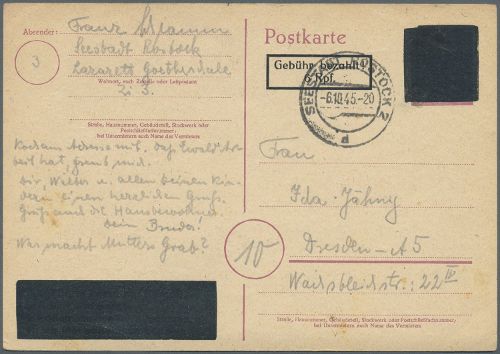 Absender: Franz
Seestadt Rostock
Lazarett Goetheschule
Zi 3.
Wohnort, auch Zustell- oder Leitpostamt
3
Straße, Hausnummer, Gebäudeteil, Stockwerk oder
Postschließfachnummer;
bei Untermietern auch Name des Vermieters
Postkarte
Gebühr bezahlt
Rpf.
SEESTADT ROSTOCK 2
-6.10.45.-20
P
mit, daß Ewald
hat, freut mich.
Dir, Walter u. allen Deinen Kin-
dern einen herzlichen Gruß.
Gruß and die Hausbewohner
Dein Bruder!
Was macht Mutters Grab?
Frau
Ida Jähnig
10
Dresden-A5
: 22 IV
Straße, Hausnummer, Gebäudeteil, Stockwerk oder Postschließfachnummer;
bei Untermietern auch Name des Vermieters